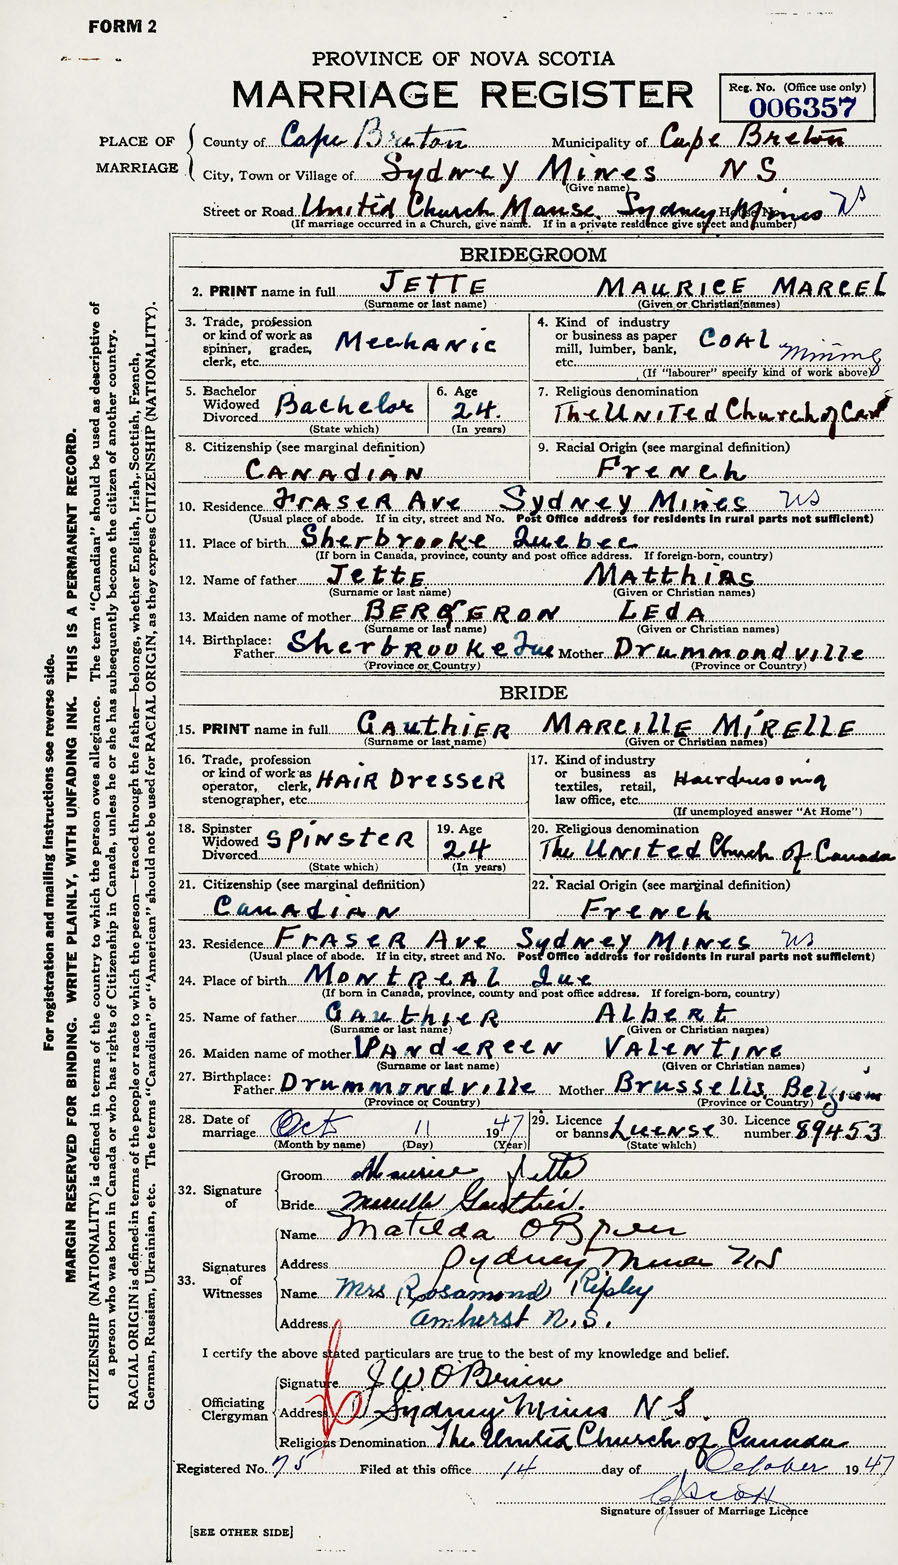 FORM 2
PROVINCE OF NOVA SCOTIA
MARRIAGE REGISTER
Reg. No. (Office use only)
006357
PLACE OF MARRIAGE
County of Cape Breton Municipality of Cape Breton
City, Town or Village of Sydney Mines NS
(Give name)
Street or Road United Church Manse, Sydney Mines NS House No.
(If marriage occurred in a Church, give name. If in a private residence give street and number)
BRIDEGROOM
2. PRINT name in full JETTE MAURICE MARCEL
(Surname or last name) (Given or Christian names)
3. Trade, profession or kind of work as spinner, grader, clerk, etc. Mechanic
4. Kind of industry or business as paper mill, lumber, bank, etc. COAL mining
(If "labourer" specify kind of work above)
5. Bachelor Widowed Divorced Bachelor
(State which)
6. Age 24.
(In years)
7. Religious denomination
The United Church of Can
8. Citizenship (see marginal definition)
CANADIAN
9. Racial Origin (see marginal definition)
French
10. Residence FRASER Ave Sydney Mines NS
(Usual place of abode. If in city, street and No. Post Office address for residents in rural parts not sufficient)
11. Place of birth Sherbrooke Quebec
(If born in Canada, province, county and post office address. If foreign-born, country)
12. Name of father Jette Matthias
(Surname or last name) (Given or Christian names)
13. Maiden name of mother BERGERON LEDA
(Surname or last name) (Given or Christian names)
14. Birthplace: Father Sherbrooke Que Mother Drummondville
(Province or Country) (Province or Country)
BRIDE
15. PRINT name in full Gauthier MARCILLE MIRELLE
(Surname or last name) (Given or Christian names)
16. Trade, profession or kind of work as operator, clerk, stenographer, etc. HAIR DRESSER
17. Kind of industry or business as textiles, retail, law office, etc. Hairdressing
(If unemployed answer "At Home")
18. Spinster Widowed Divorced SPINSTER
(State which)
19. Age 24
(In years)
20. Religious denomination
The United Church of Canada
21. Citizenship (see marginal definition)
Canadian
22. Racial Origin (see marginal definition)
French
23. Residence FRASER Ave Sydney Mines NS
(Usual place of abode. If in city, street and No. Post Office address for residents in rural parts not sufficient)
24. Place of birth MONTREAL Que
(If born in Canada, province, county and post office address. If foreign-born, country)
25. Name of father Gauthier Albert
(Surname or last name) (Given or Christian names)
26. Maiden name of mother VANDEREEN VALENTINE
(Surname or last name) (Given or Christian names)
27. Birthplace: Father Drummondville Mother Brussells, Belgium
(Province or Country) (Province or Country)
28. Date of marriage Oct 11 1947
(Month by name) (Day) (Year)
29. Licence or banns License
(State which)
30. Licence number 89453
32. Signature of
Groom Maurice Jette
Bride Mireille Gauthier.
33. Signatures of Witnesses
Name Matilda O'Brien
Address Sydney Mines NS
Name Mrs Rosamond Ripley
Address Amherst N.S.
I certify the above stated particulars are true to the best of my knowledge and belief.
Officiating Clergyman
Signature J W. O'Brien
Address Sydney Mines N S.
Religious Denomination The United Church of Canada
Registered No. 75 Filed at this office 14 day of October 1947
Signature of Issuer of Marriage Licence
[SEE OTHER SIDE]
For registration and mailing instructions see reverse side.
MARGIN RESERVED FOR BINDING. WRITE PLAINLY, WITH UNFADING INK. THIS IS A PERMANENT RECORD.
CITIZENSHIP (NATIONALITY) is defined in terms of the country to which the person owes allegiance. The term "Canadian" should be used as descriptive of
a person who was born in Canada or who has rights of Citizenship in Canada, unless he or she has subsequently become the citizen of another country.
RACIAL ORIGIN is defined in terms of the people or race to which the person—traced through the father—belongs, whether English, Irish, Scottish, French,
German, Russian, Ukrainian, etc. The terms "Canadian" or "American" should not be used for RACIAL ORIGIN, as they express CITIZENSHIP (NATIONALITY).